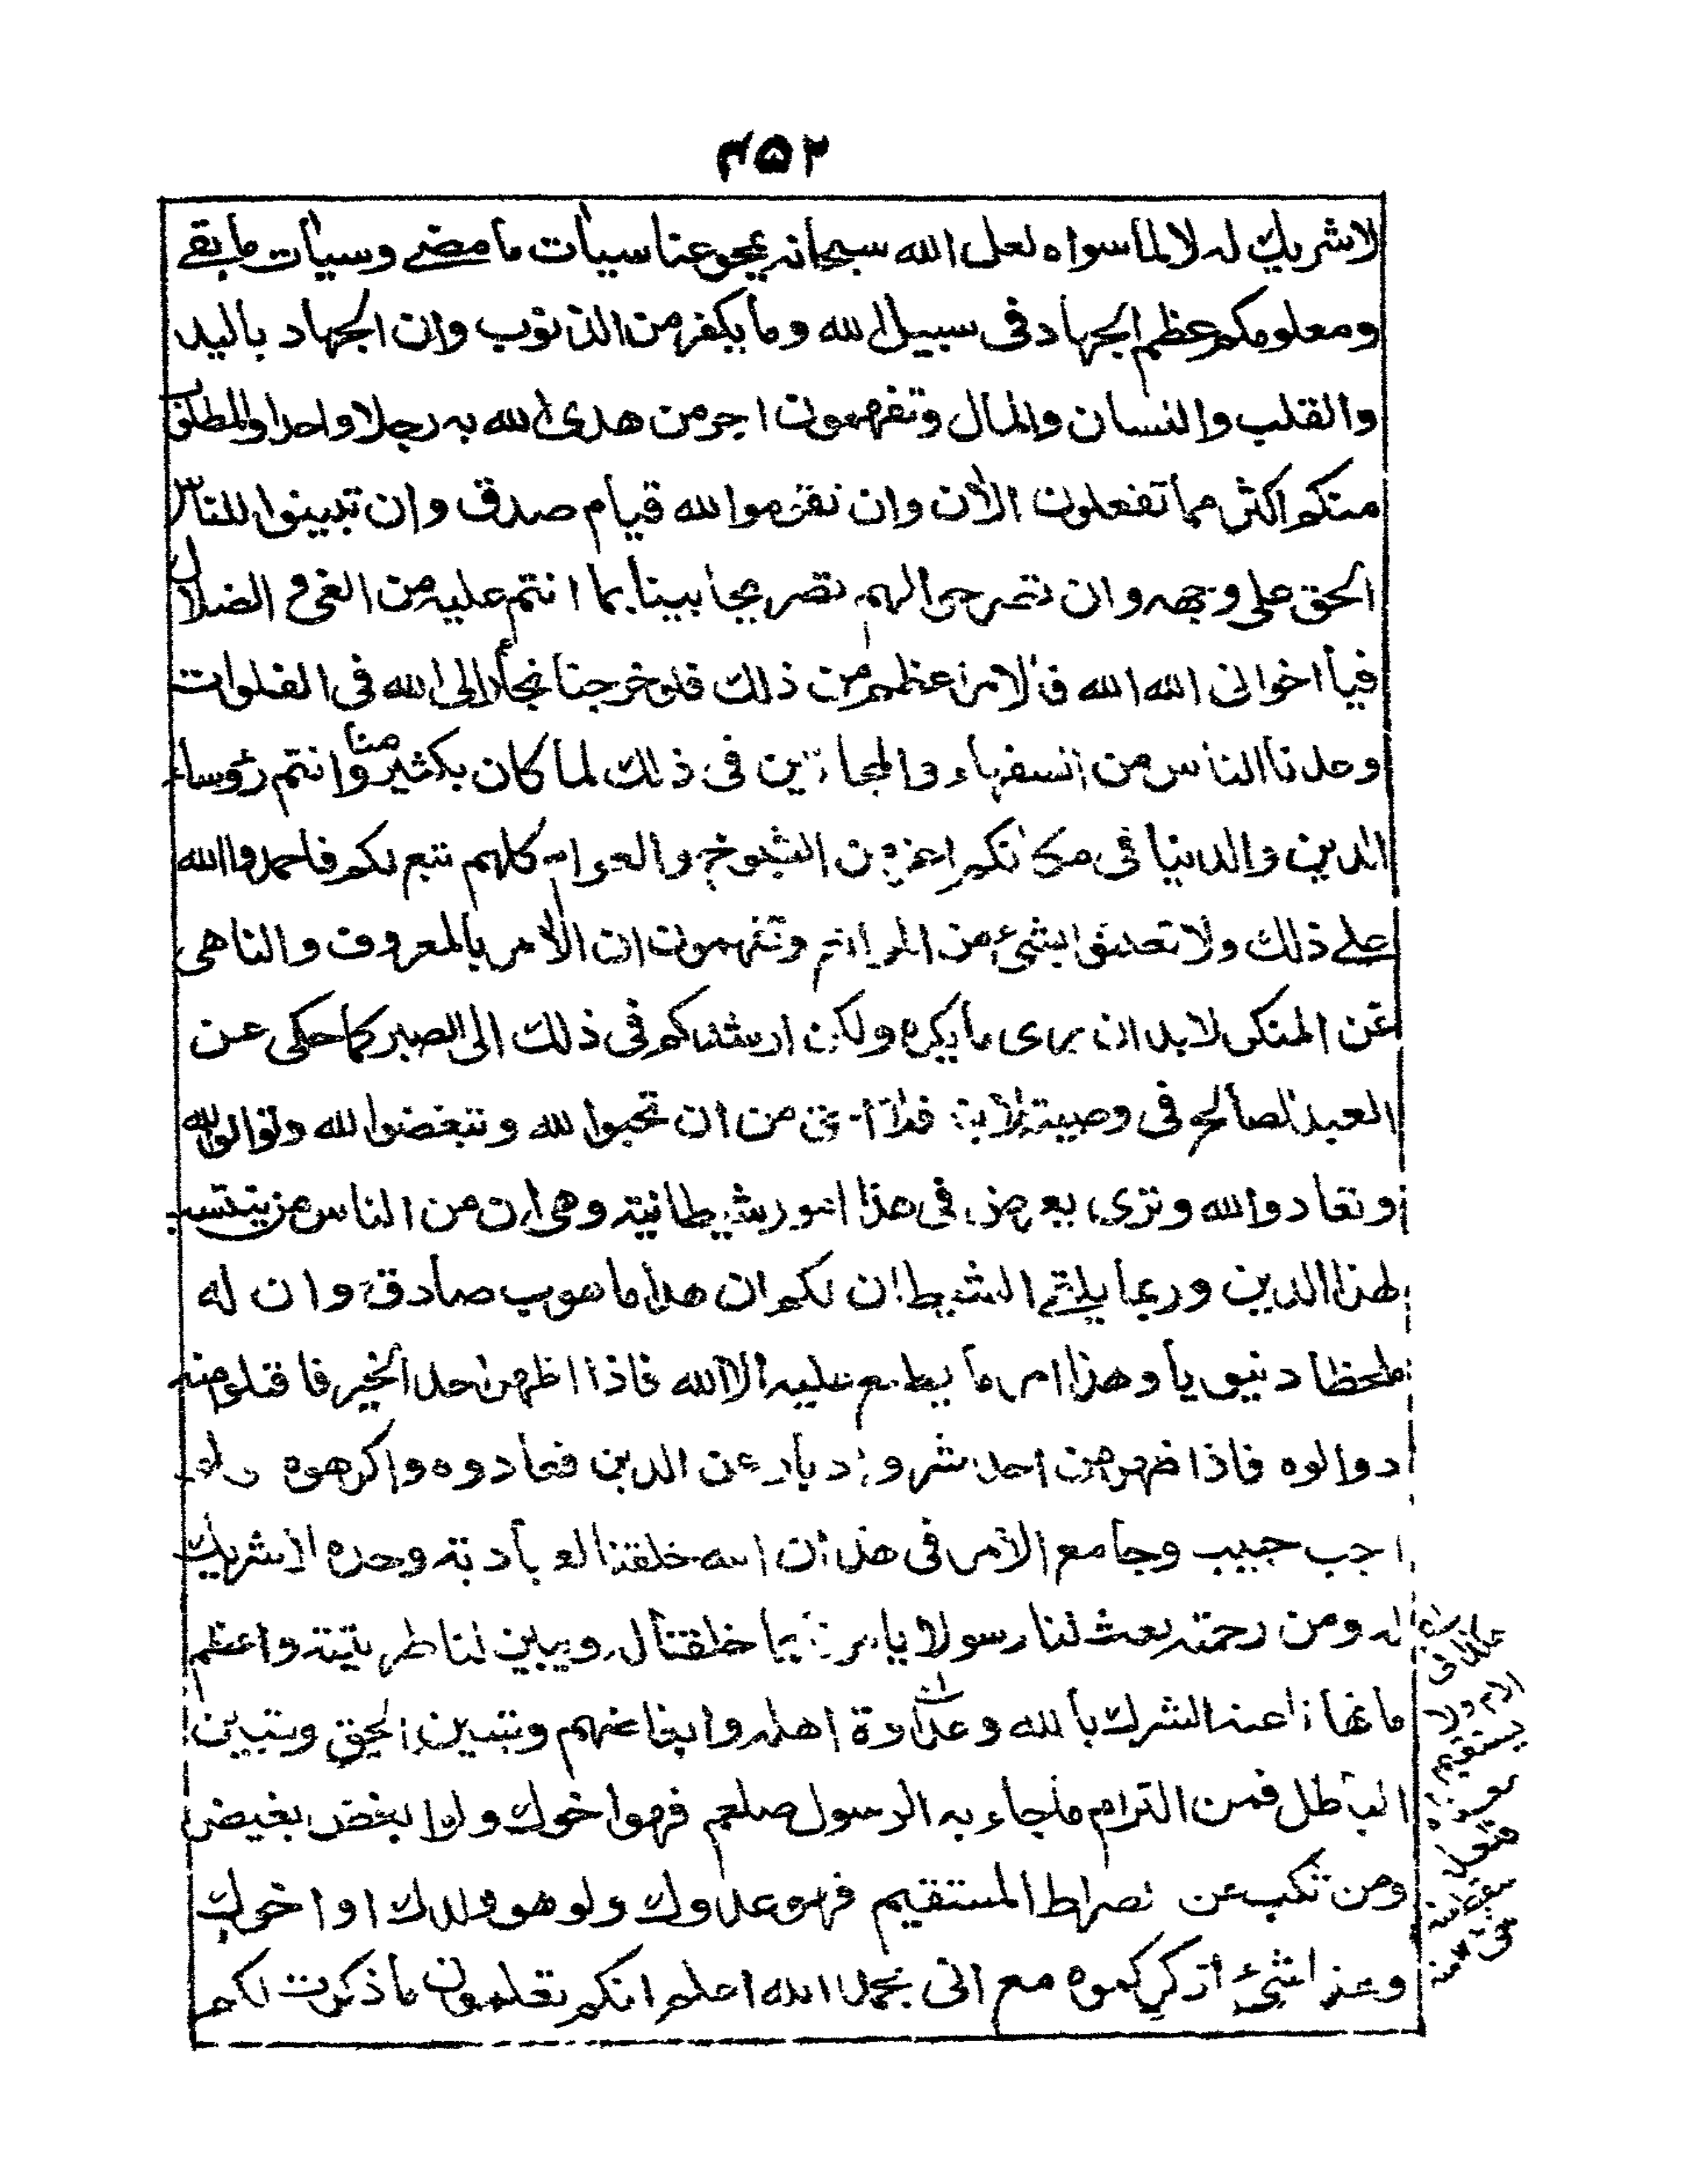 ۲۵۴
لا شريك له لا لما سواه لعل الله سبحانه يمحو عنا سيأت ما مضے وسيأت ما بقے
ومعلومكم عظم الجهاد فى سبيل الله وما يكفر من الذنوب وان الجهاد باليد
والقلب والنسان والمال وتفهمون اجر من هدى الله به رجلا واحدا والمطلوب
منكم اكثر مما تفعلون الأن وان تقوموا لله قيام صدق وان تبينوا للناس
الحق على وجهه وان تصرحوا لهم تصريحا بينا بما انتم عليه من الغى والضلال
فيا اخوانى الله الله فالامر اعظم من ذلك فلو خرجنا نجأر الى الله فى الفلوات
وعدنا الناس من السفهاء والمجانين فى ذلك لما كان بكثير منا وانتم رؤساء
الدين والدنيا فى مكانكم اعز من الشيوخ والعوام كلهم تبع لكم فاحمدوا الله
علے ذلك ولا تعتلوا بشئ من الموانع وتفهمون ان الأمر بالمعروف والناهى
عن المنكر لا بد ان يرى ما يكره ولكن ارشدكم فى ذلك الى الصبر كما حكى عن
العبد الصالح فى وصيته لابنه فلا احق من ان تحبوا لله وتبغضوا لله وتوالوا لله
وتعادوا لله وترى يعرض فى هذا امور شيطانية وهى ان من الناس من ينتسب
لهذا الدين وربما يلقے الشيطان لكم ان هذا ما هو بصادق وان له
ملحظا دنيويا وهذا امر ما يطلع عليه الا الله فاذا اظهر احد الخير فاقبلوا منه
ووالوه فاذا ظهر من احد شر وادبار عن الدين فعادوه واكرهوه ولو
احب حبيب وجامع الأمر فى هذا ان الله خلقنا لعبادته وحده لا شريك
له ومن رحمته بعث لنا رسولا يأمرنا بما خلقنا له ويبين لنا طريقته واعظم
ما نهانا عنه الشرك بالله وعداوة اهله وابغاضهم وتبيين الحق وتبيين
الباطل فمن التزام ما جاء به الرسول صلعم فهو اخوك ولو ابغض بغيض
ومن نكب عن الصراط المستقيم فهو عدوك ولو هو ولدك او اخوك
وهذا شئ اذكركموه مع انى بحمد الله اعلم انكم تعلمون ما ذكرت لكم